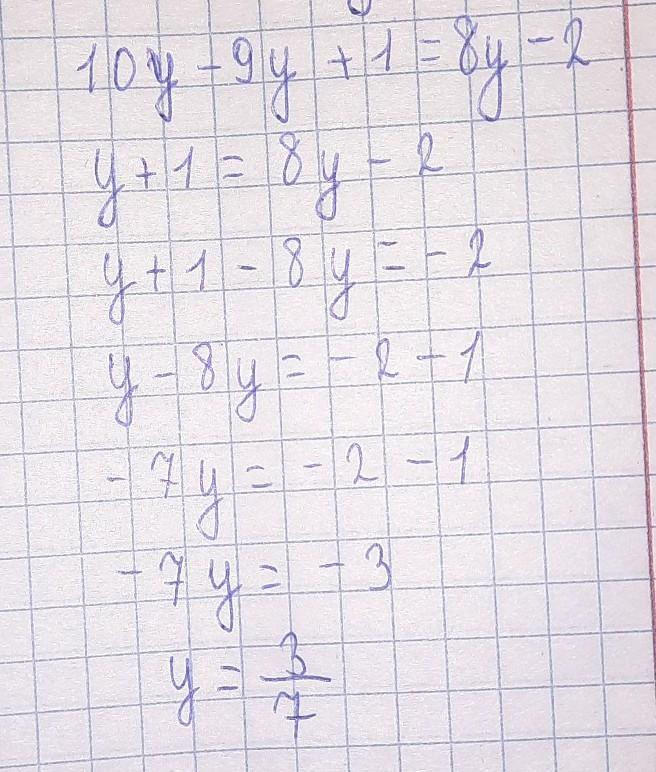 10y - 9y + 1 = 8y - 2
y + 1 = 8y - 2
y + 1 - 8y = - 2
y - 8y = - 2 - 1
- 7y = - 2 - 1
- 7y = - 3
y = 3/7